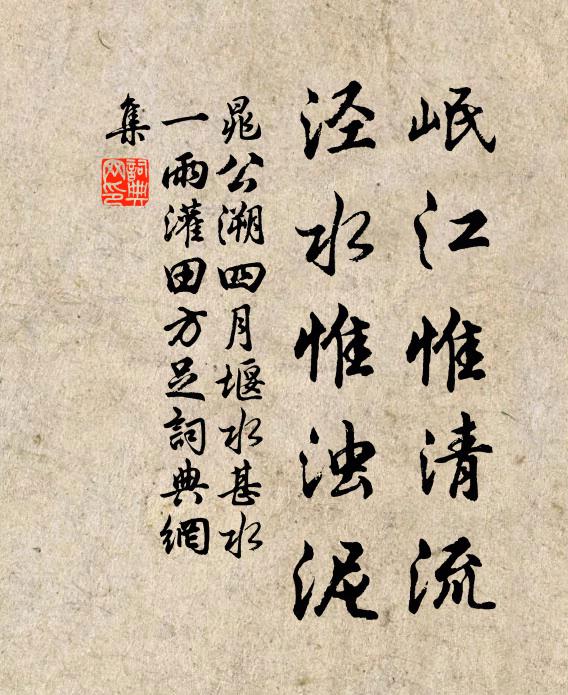 岷江惟清流
泾水惟浊泥
晁公溯四月堰水甚水
一雨灌田方足詞典網
集
詞典
网印